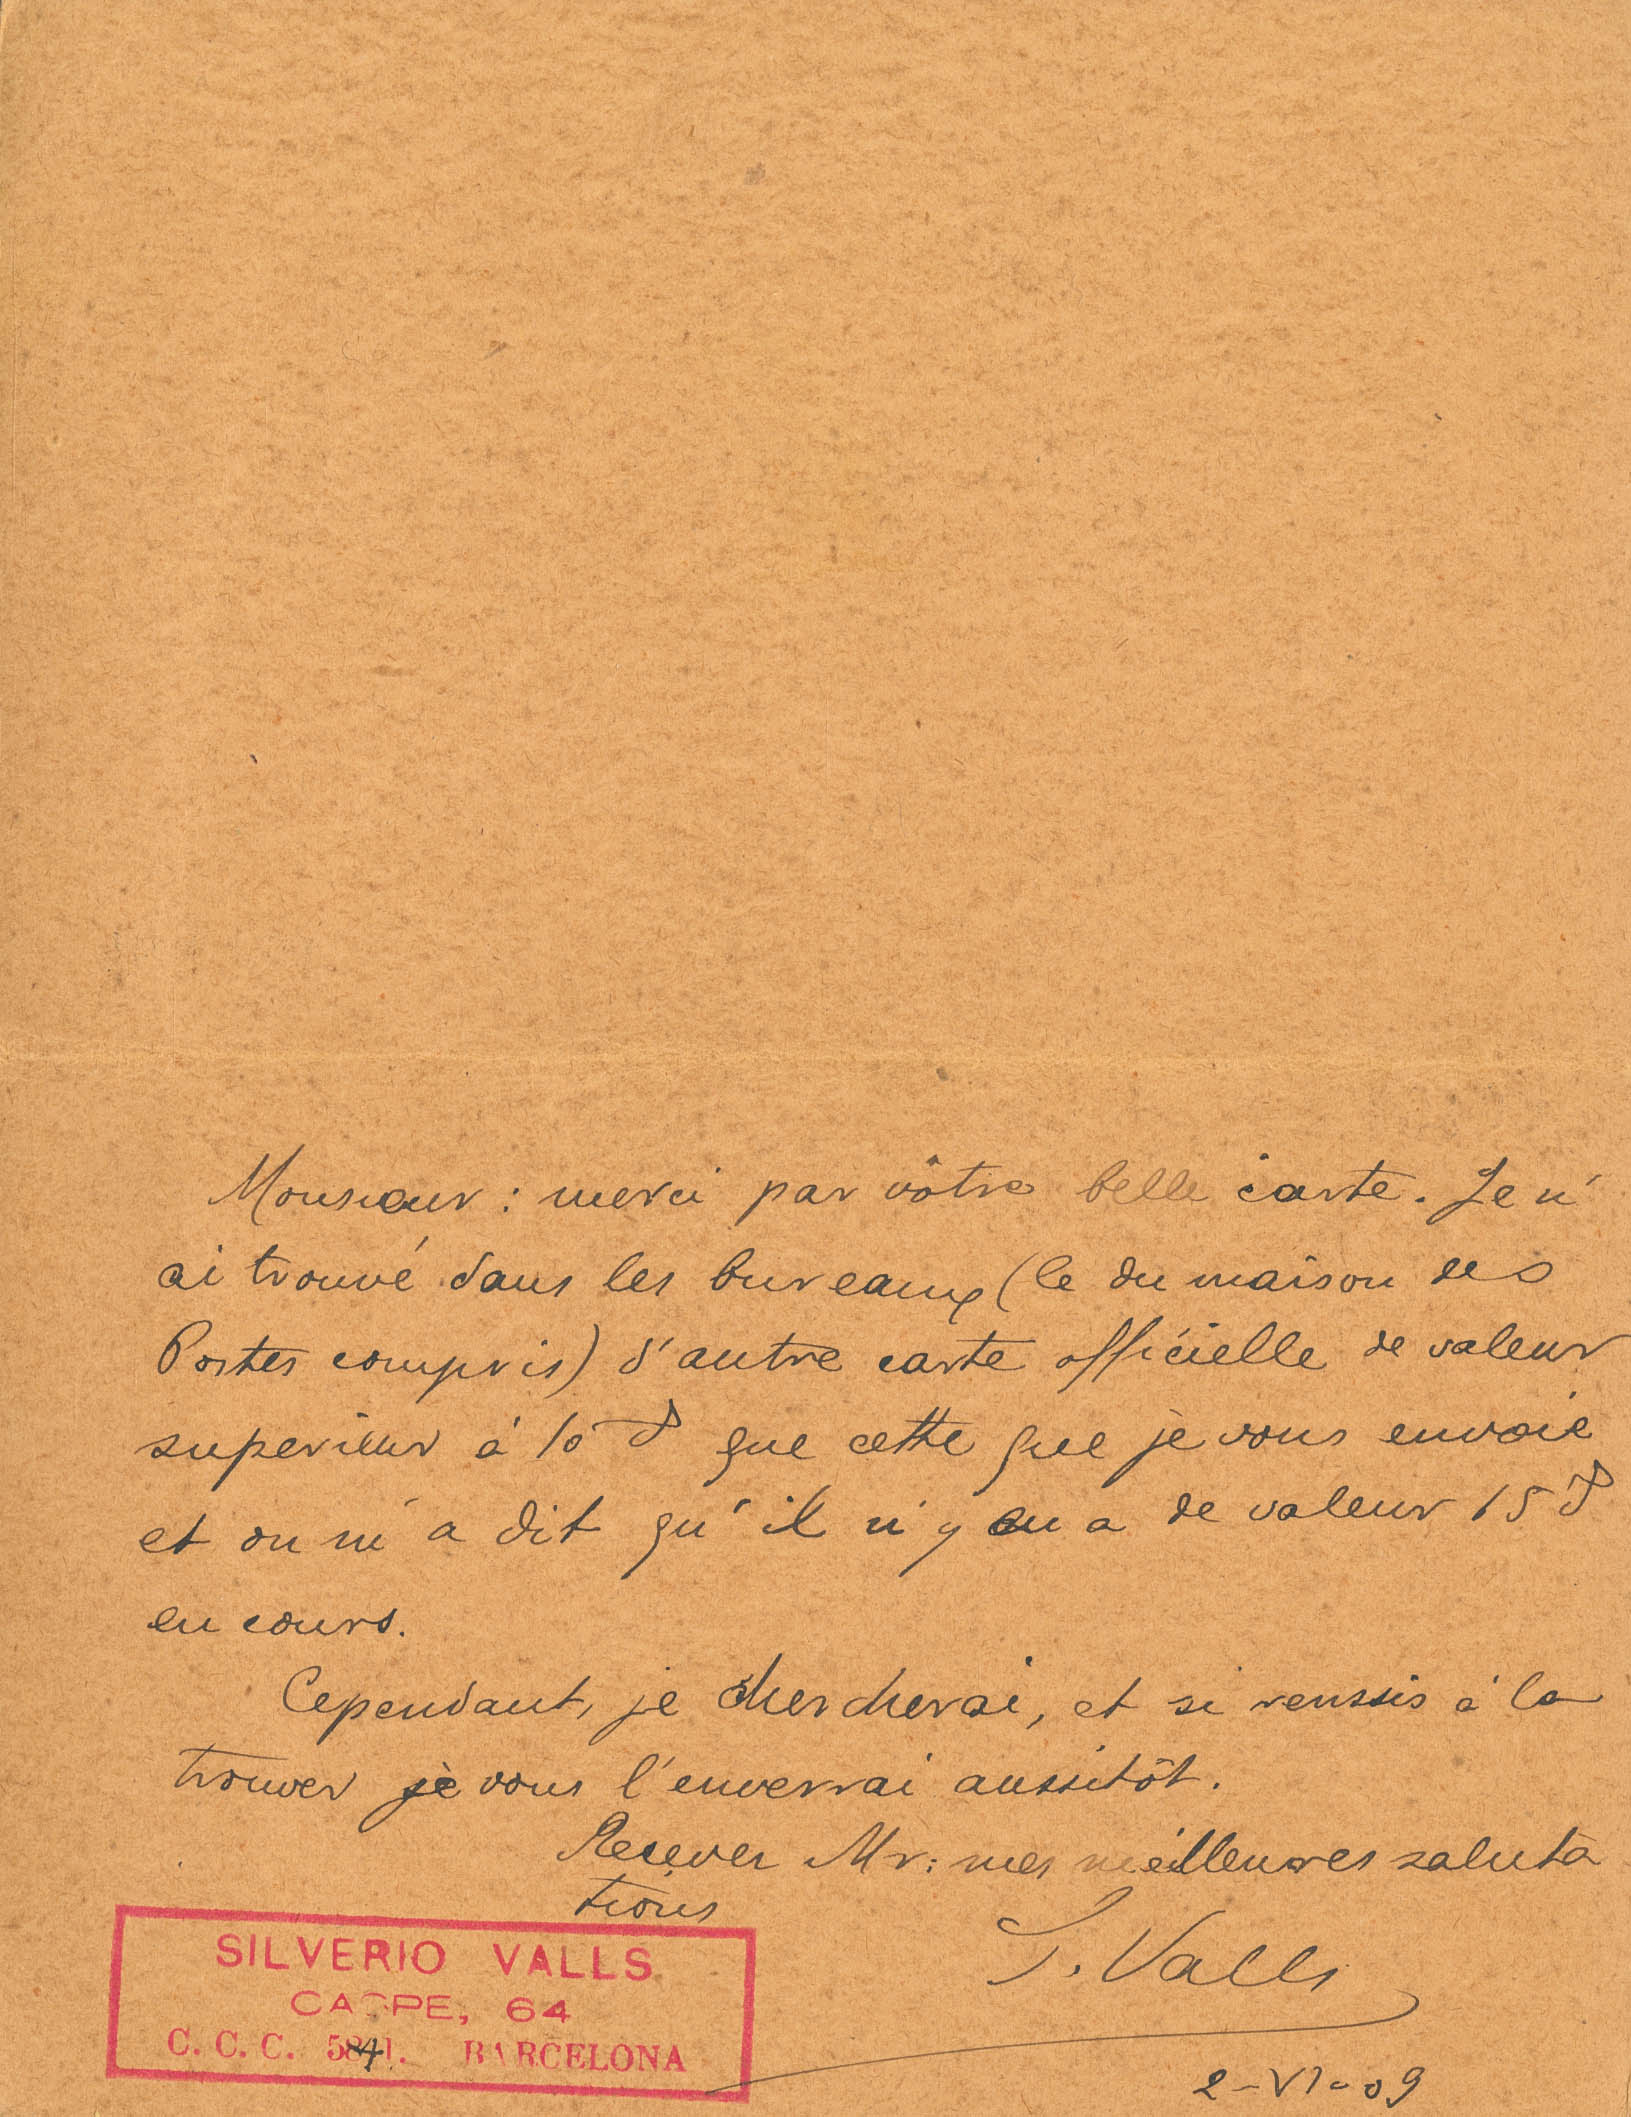 Monsieur : merci par vôtre belle carte. Je n'
ai trouvé dans les bureaux (le du maison des
Postes compris) d'autre carte officielle de valeur
superieur à 10 que cette que je vous envoie
et on m'a dit qu'il n'y en a de valeur 15
en cours.
Cependant, je chercherai, et si reussis à la
trouver je vous l'enverrai aussitôt.
Recever Mr: mes meilleures saluta
tions
S. Valls
2-VI-09
SILVERIO VALLS
CASPE, 64
C. C. C. 5841. BARCELONA